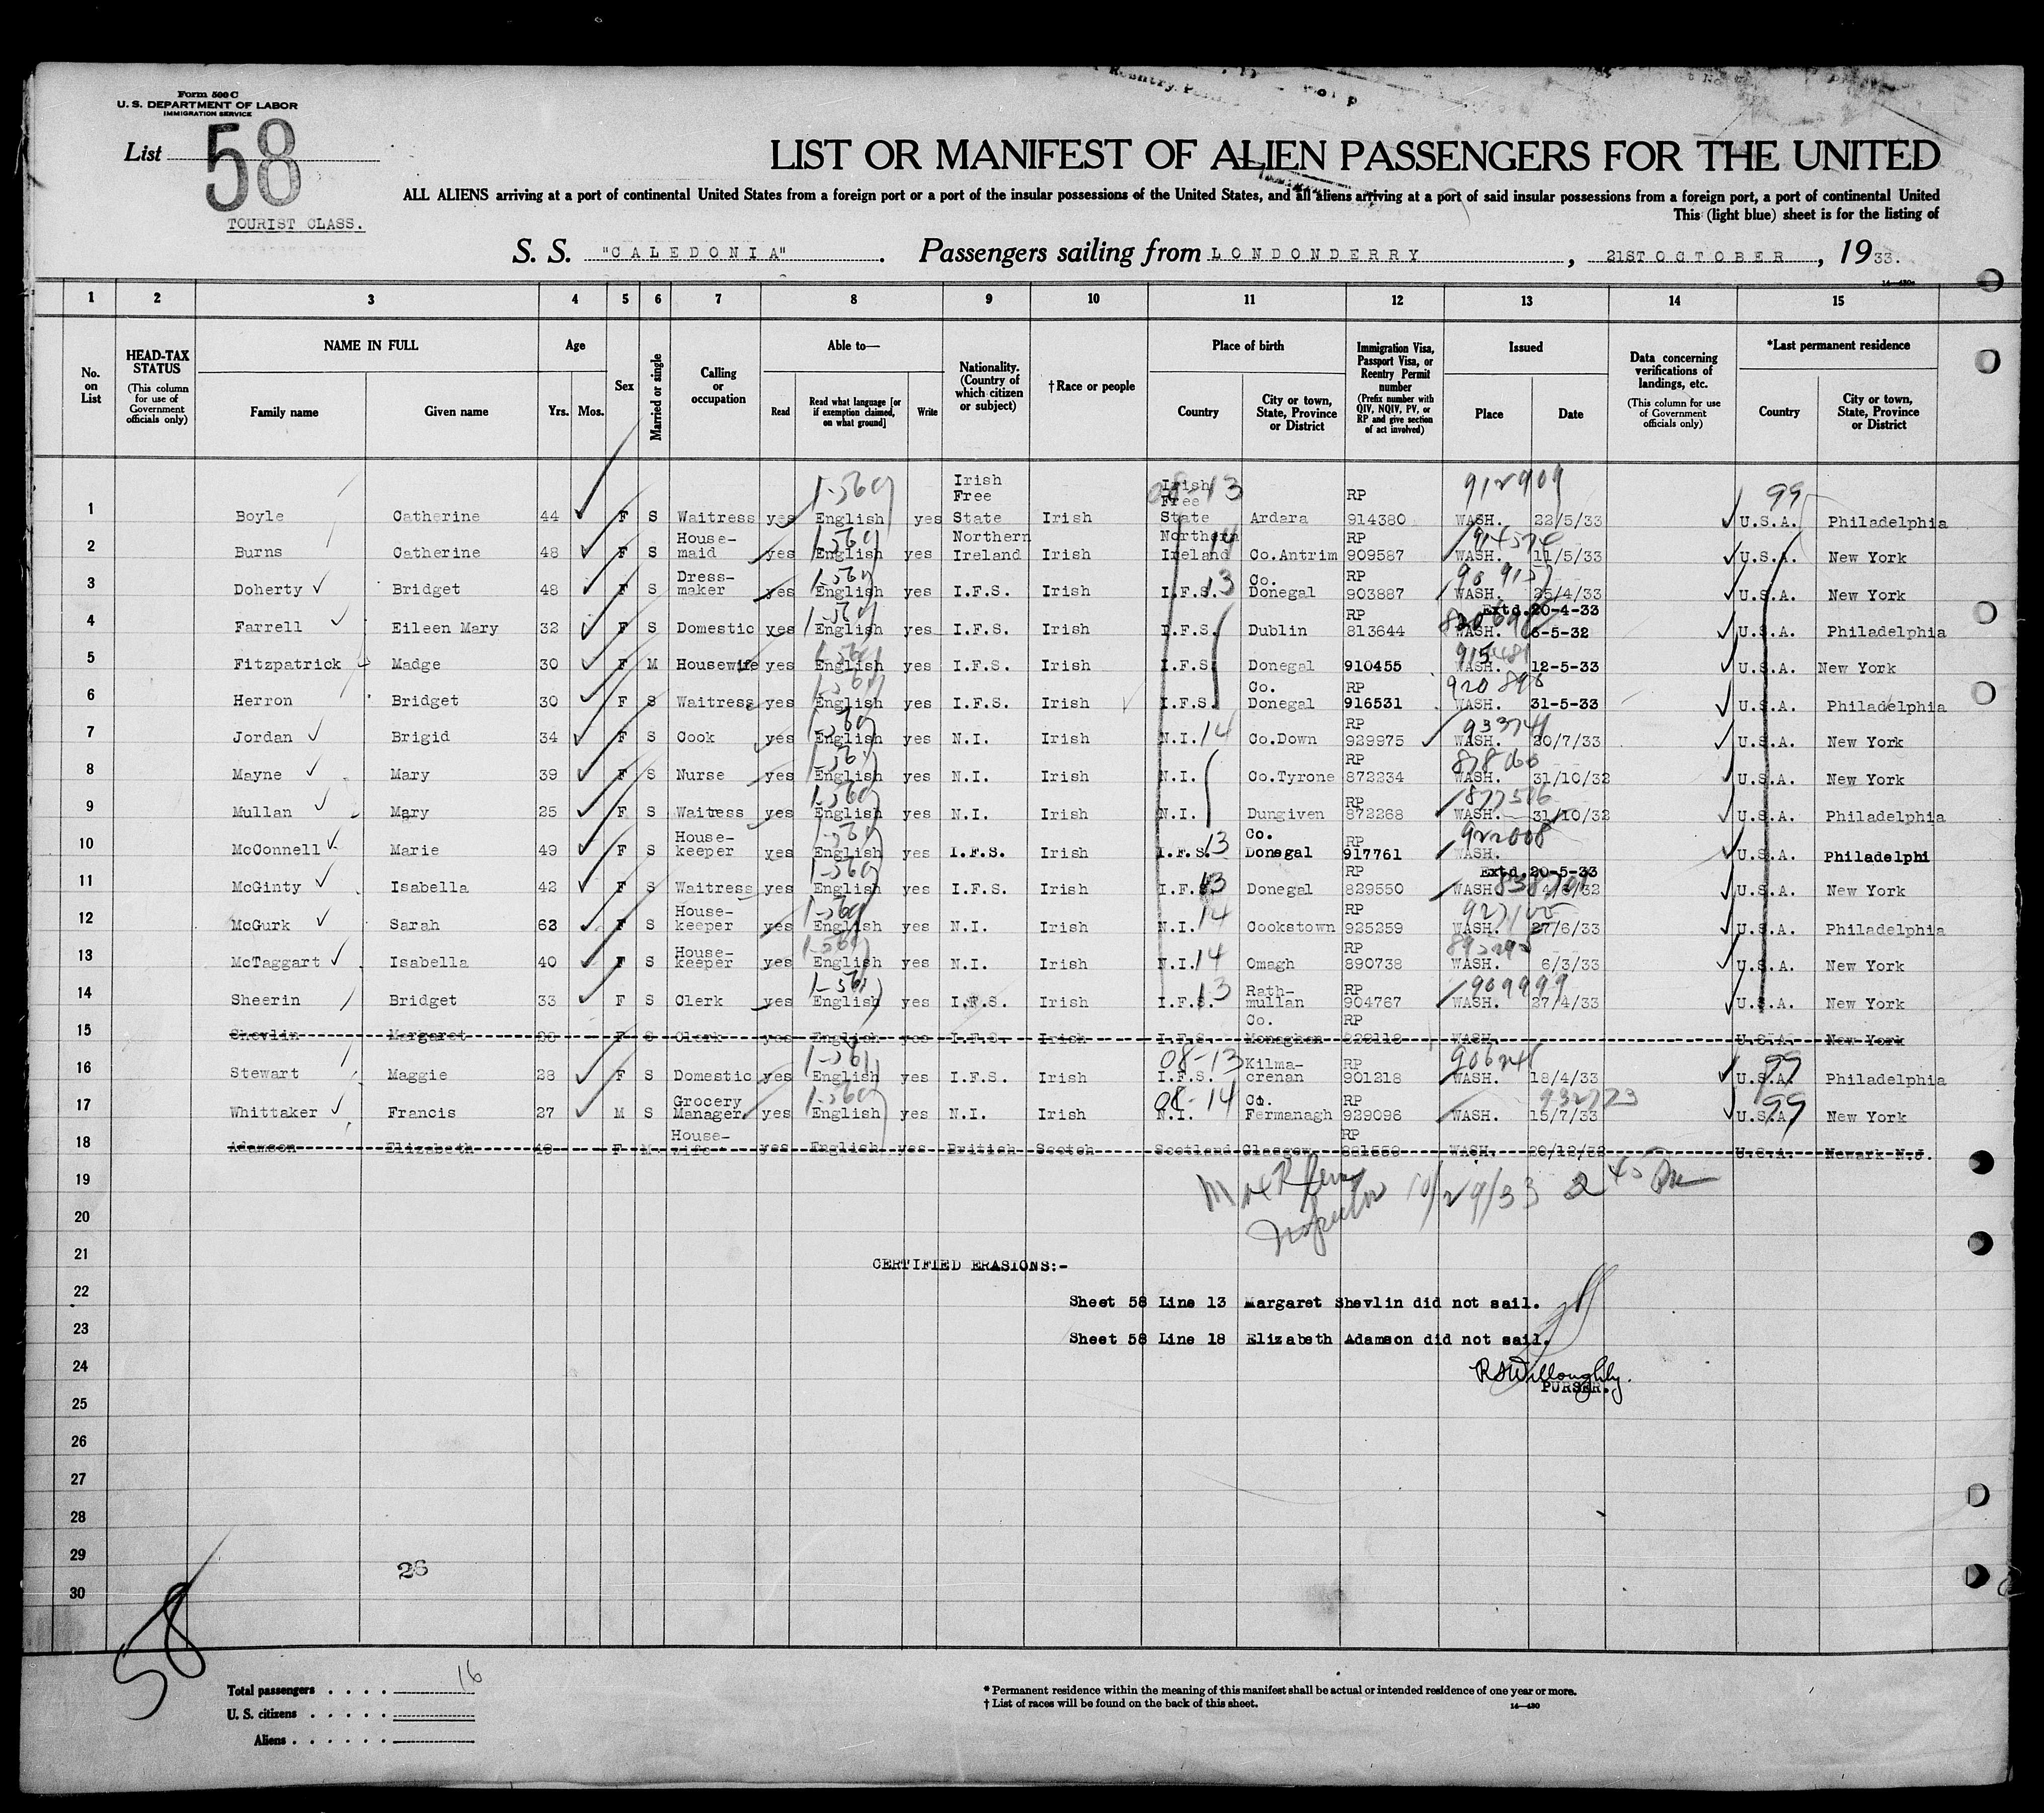 Form 500 C
U. S. DEPARTMENT OF LABOR
IMMIGRATION SERVICE
List 58
TOURIST CLASS.
LIST OR MANIFEST OF ALIEN PASSENGERS FOR THE UNITED
ALL ALIENS arriving at a port of continental United States from a foreign port or a port of the insular possessions of the United States, and all aliens arriving at a port of said insular possessions from a foreign port, a port of continental United
This (light blue) sheet is for the listing of
S. S. "CALEDONIA". Passengers sailing from LONDONDERRY, 21ST OCTOBER, 1933.
1 2 3 4 5 6 7 8 9 10 11 12 13 14 15
No. on List
HEAD-TAX STATUS (This column for use of Government officials only)
NAME IN FULL Family name Given name
Age Yrs. Mos.
Sex
Married or single
Calling or occupation
Able to— Read Read what language [or if exemption claimed, on what ground] Write
Nationality. (Country of which citizen or subject)
†Race or people
Place of birth Country City or town, State, Province or District
Immigration Visa, Passport Visa, or Reentry Permit number (Prefix number with QIV, NQIV, PV, or RP and give section of act involved)
Issued Place Date
Data concerning verifications of landings, etc. (This column for use of Government officials only)
*Last permanent residence Country City or town, State, Province or District
1 Boyle Catherine 44 F S Waitress yes English yes Irish Free State Irish Irish Free State Ardara RP 914380 WASH. 22/5/33 U.S.A. Philadelphia
2 Burns Catherine 48 F S House-maid yes English yes Northern Ireland Irish Northern Ireland Co.Antrim RP 909587 WASH. 11/5/33 U.S.A. New York
3 Doherty Bridget 48 F S Dress-maker yes English yes I.F.S. Irish I.F.S. Co. Donegal RP 903887 WASH. 25/4/33 U.S.A. New York
4 Farrell Eileen Mary 32 F S Domestic yes English yes I.F.S. Irish I.F.S. Dublin RP 813644 WASH. Extd.20-4-33 6-5-32 U.S.A. Philadelphia
5 Fitzpatrick Madge 30 F M Housewife yes English yes I.F.S. Irish I.F.S. Donegal 910455 WASH. 12-5-33 U.S.A. New York
6 Herron Bridget 30 F S Waitress yes English yes I.F.S. Irish I.F.S. Co. Donegal RP 916531 WASH. 31-5-33 U.S.A. Philadelphia
7 Jordan Brigid 34 F S Cook yes English yes N.I. Irish N.I. 14 Co.Down RP 929975 WASH. 20/7/33 U.S.A. New York
8 Mayne Mary 39 F S Nurse yes English yes N.I. Irish N.I. Co.Tyrone RP 872234 WASH. 31/10/32 U.S.A. New York
9 Mullan Mary 25 F S Waitress yes English yes N.I. Irish N.I. Dungiven RP 872268 WASH. 31/10/32 U.S.A. Philadelphia
10 McConnell Marie 49 F S House-keeper yes English yes I.F.S. Irish I.F.S. 13 Co. Donegal RP 917761 WASH. 922008 U.S.A. Philadelphi
11 McGinty Isabella 42 F S Waitress yes English yes I.F.S. Irish I.F.S. 13 Donegal RP 829550 WASH. Extd.20-5-33 U.S.A. New York
12 McGurk Sarah 62 F S House-keeper yes English yes N.I. Irish N.I. 14 Cookstown RP 925259 WASH. 27/6/33 U.S.A. Philadelphia
13 McTaggart Isabella 40 F S House-keeper yes English yes N.I. Irish N.I. 14 Omagh RP 890738 WASH. 6/3/33 U.S.A. New York
14 Sheerin Bridget 33 F S Clerk yes English yes I.F.S. Irish I.F.S. 13 Rath-mullan RP 904767 WASH. 909999 27/4/33 U.S.A. New York
15 Shevlin Margaret F S Clerk yes English yes I.F.S. Irish I.F.S. Co. Monaghan RP WASH. U.S.A. New York
16 Stewart Maggie 28 F S Domestic yes English yes I.F.S. Irish 08-13 I.F.S. Kilma-crenan RP 901218 WASH. 18/4/33 99 U.S.A. Philadelphia
17 Whittaker Francis 27 M S Grocery Manager. yes English yes N.I. Irish 08-14 N.I. Co. Fermanagh RP 929096 WASH. 15/7/33 99 U.S.A. New York
18 Adamson Elizabeth F M House-wife yes English yes British Scotch Scotland Glasgow RP WASH. 20/12/32 U.S.A. Newark N.J.
19
Inspector 10/29/33 2 45
20
21
CERTIFIED ERASIONS:-
22 Sheet 58 Line 13 Margaret Shevlin did not sail.
23 Sheet 58 Line 18 Elizabeth Adamson did not sail.
24 R S Willoughby.
PURSER.
25
26
27
28
29
30
58
Total passengers . . . . 16
U. S. citizens . . . . .
Aliens . . . . . .
* Permanent residence within the meaning of this manifest shall be actual or intended residence of one year or more.
† List of races will be found on the back of this sheet.
14—430